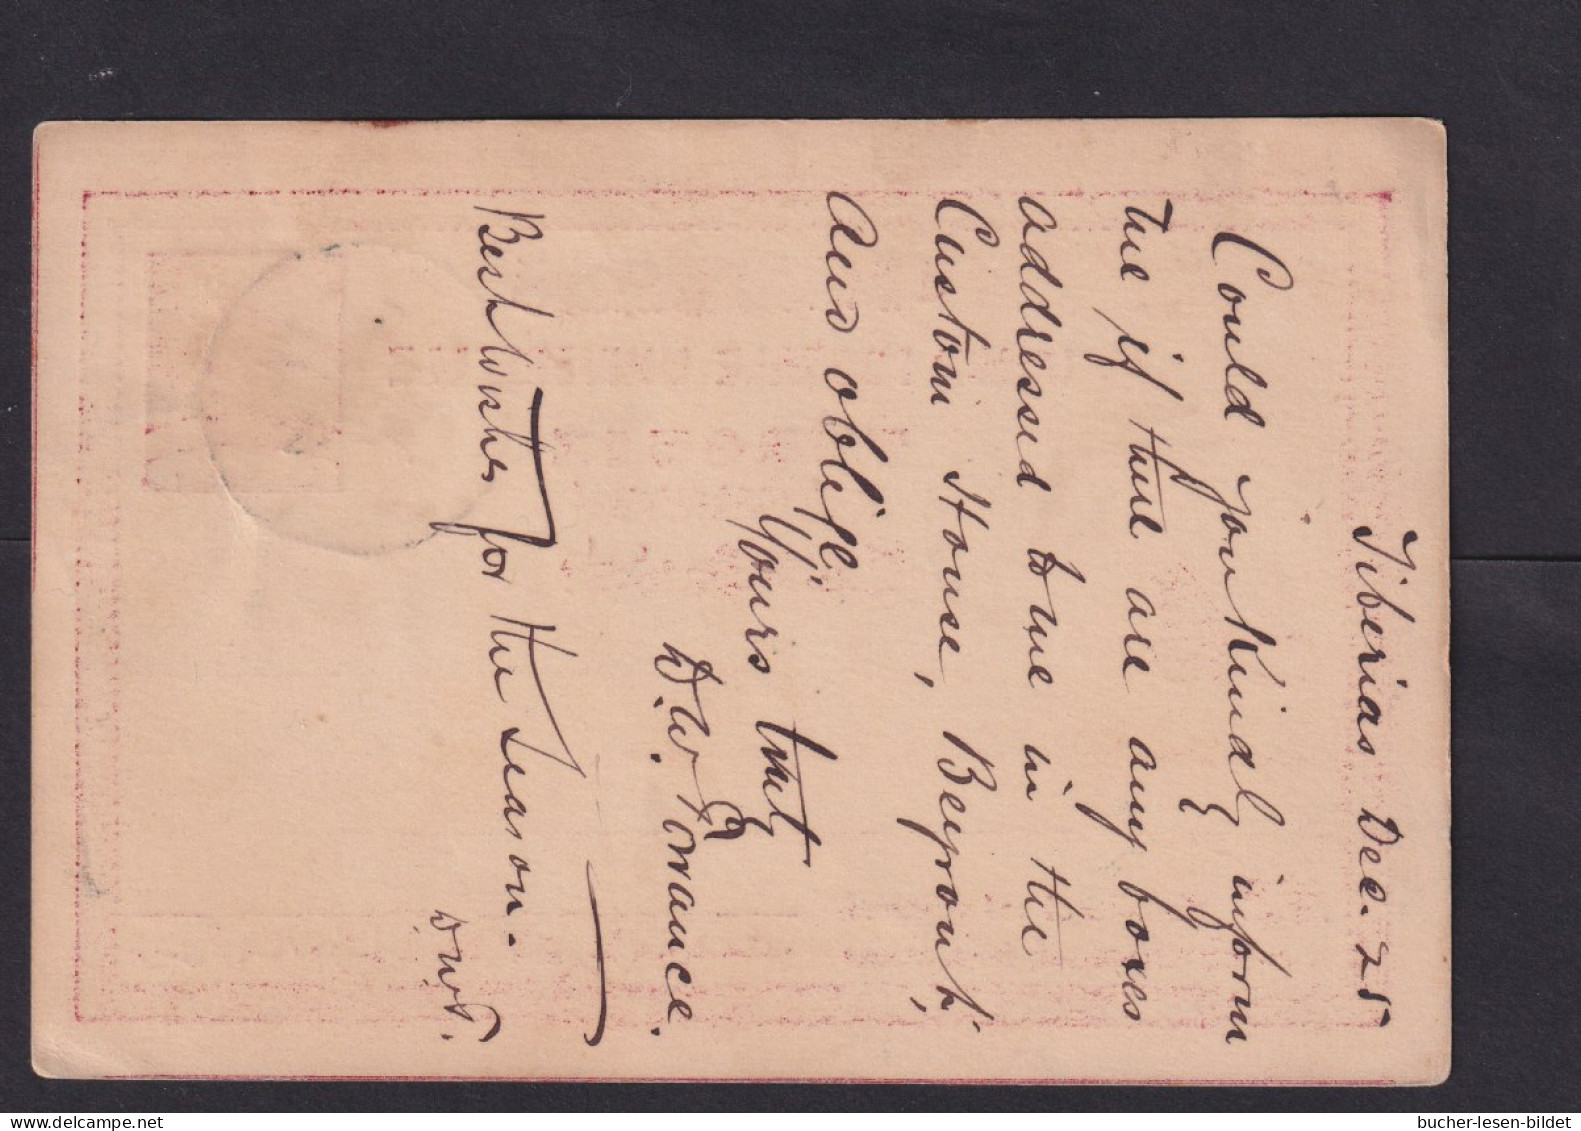 Tiberias Dec. 25
Could you kindly inform
me if there are any boxes
addressed to me in the
Custom House, Beyrout,
and oblige
Yours truly
D. W. Torrance.
Best wishes for the season.
D.W.T.
www.delcampe.net
bucher-lesen-bildet